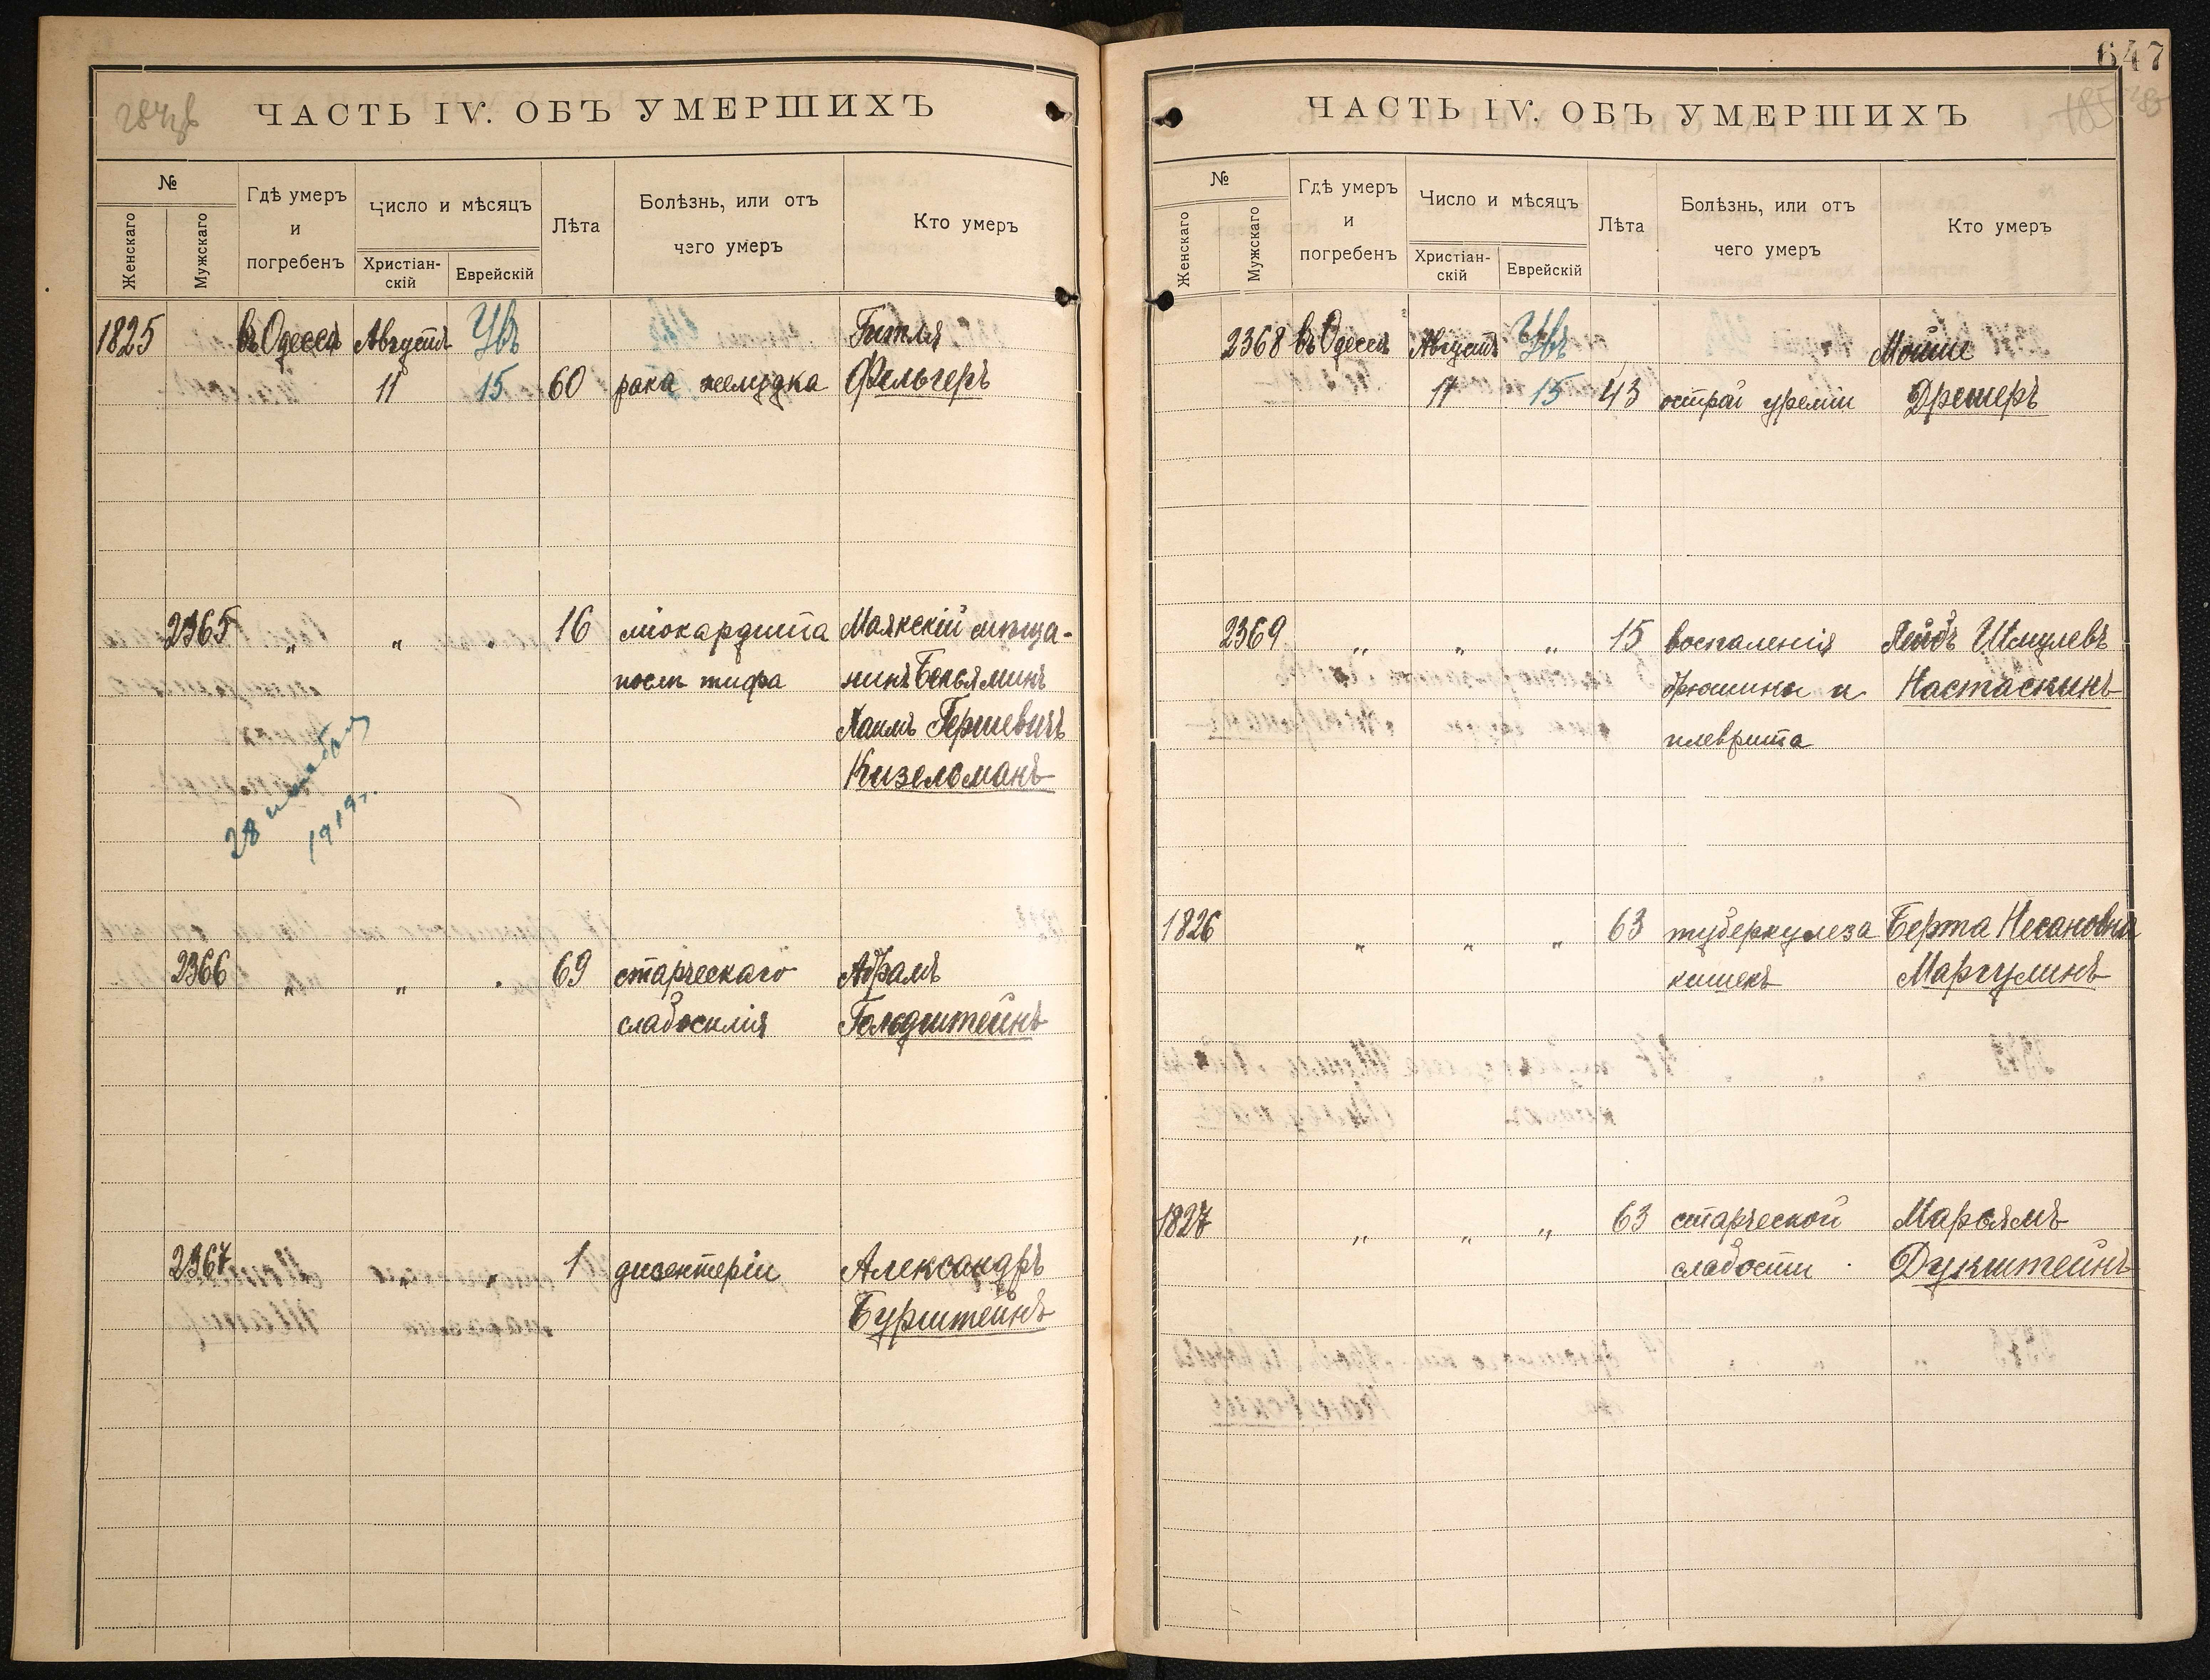 ЧАСТЬ IV. ОБЪ УМЕРШИХЪ
№
Женскаго
Мужскаго
Гдѣ умеръ
и
погребенъ
Число и мѣсяцъ
Христіан-
скій
Еврейскій
Лѣта
Болѣзнь, или отъ
чего умеръ
Кто умеръ
1825 въ Одессѣ Августъ Увъ Гитля
11 15 60 рака желудка Фельгеръ
2365 „ „ „ 16 міокардита Маякскій мѣща-
послѣ тифа нинъ Беньяминъ
Хаимъ Гершевичъ
Кизельманъ
28
1919 г.
2366 „ „ „ 69 старческаго Абрамъ
слабосилія Гольдштейнъ
2367 „ „ 1 дизентеріи Александръ
Бурштейнъ
647
ЧАСТЬ IV. ОБЪ УМЕРШИХЪ
№
Женскаго
Мужскаго
Гдѣ умеръ
и
погребенъ
Число и мѣсяцъ
Христіан-
скій
Еврейскій
Лѣта
Болѣзнь, или отъ
чего умеръ
Кто умеръ
2368 въ Одессѣ Августъ Увъ Мойше
11 15 43 острой уреміи Дрешеръ
2369 „ „ „ 15 воспаленія Лейбъ Шмулевъ
брюшины и Настаскинъ
плеврита
1826 „ „ „ 63 туберкулеза Берта Несановна
кишекъ Маргулинъ
1827 „ „ „ 63 старческой Марьямъ
слабости Дукштейнъ